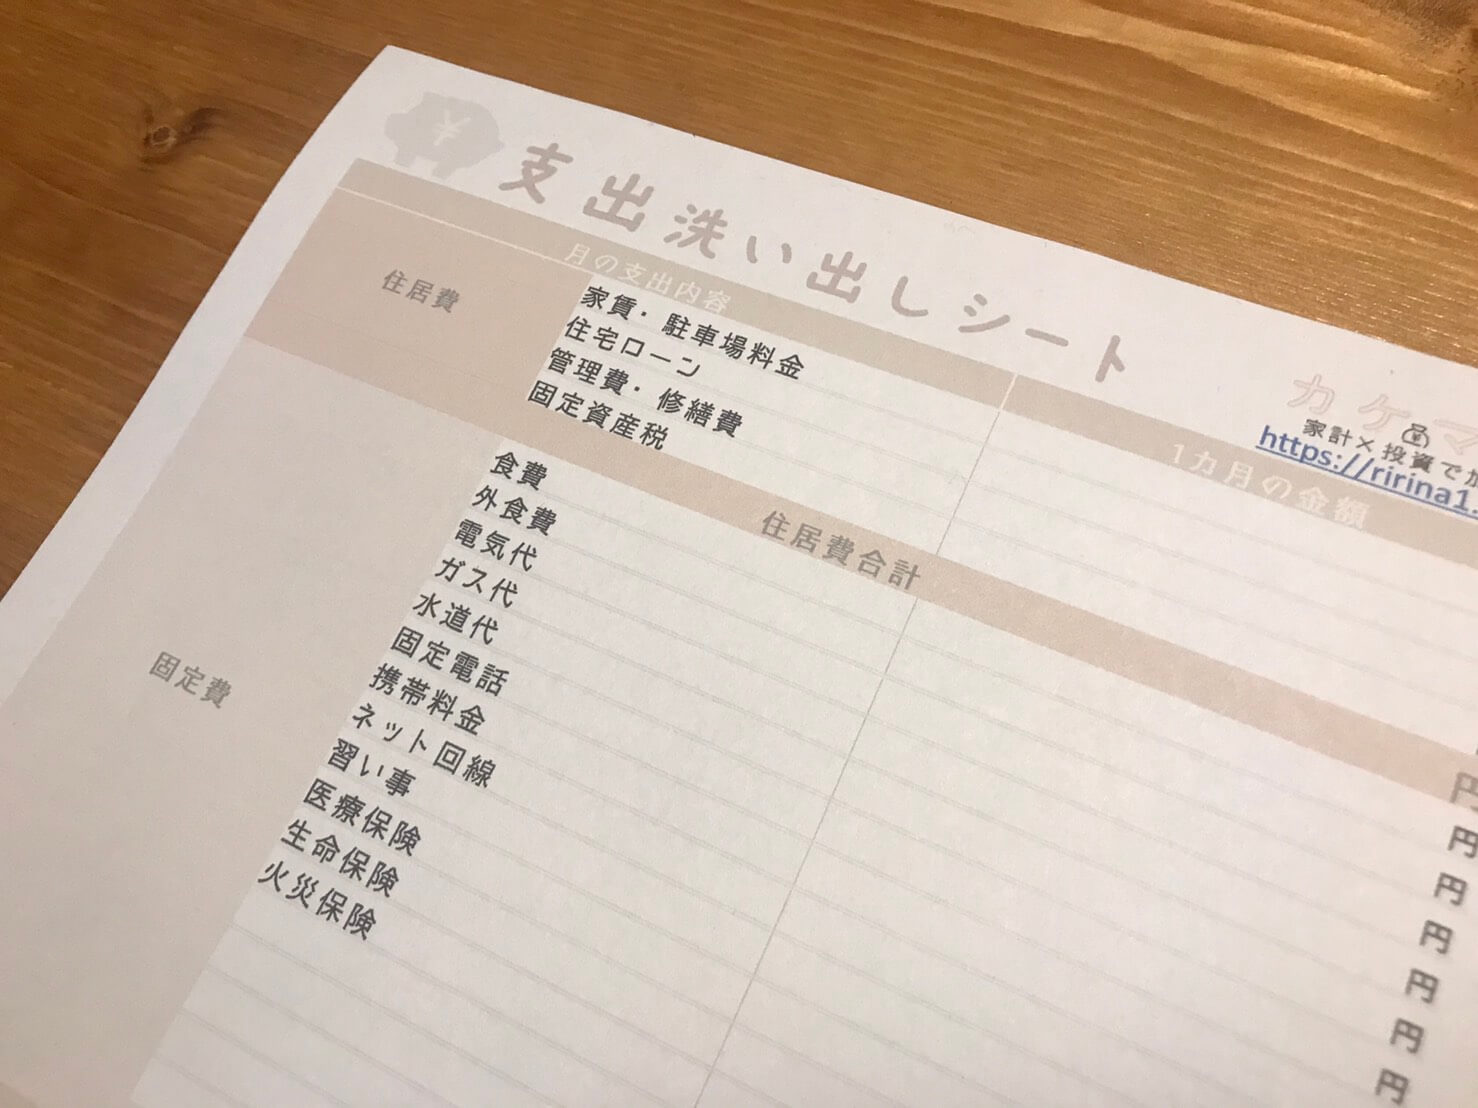 ¥
支出洗い出しシート
カケマ
家計×投資で
https://ririna1
月の支出内容
1カ月の金額
住居費
家賃・駐車場料金
住宅ローン
管理費・修繕費
固定資産税
住居費合計
円
固定費
食費
円
外食費
円
電気代
円
ガス代
円
水道代
円
固定電話
円
携帯料金
ネット回線
習い事
医療保険
生命保険
火災保険